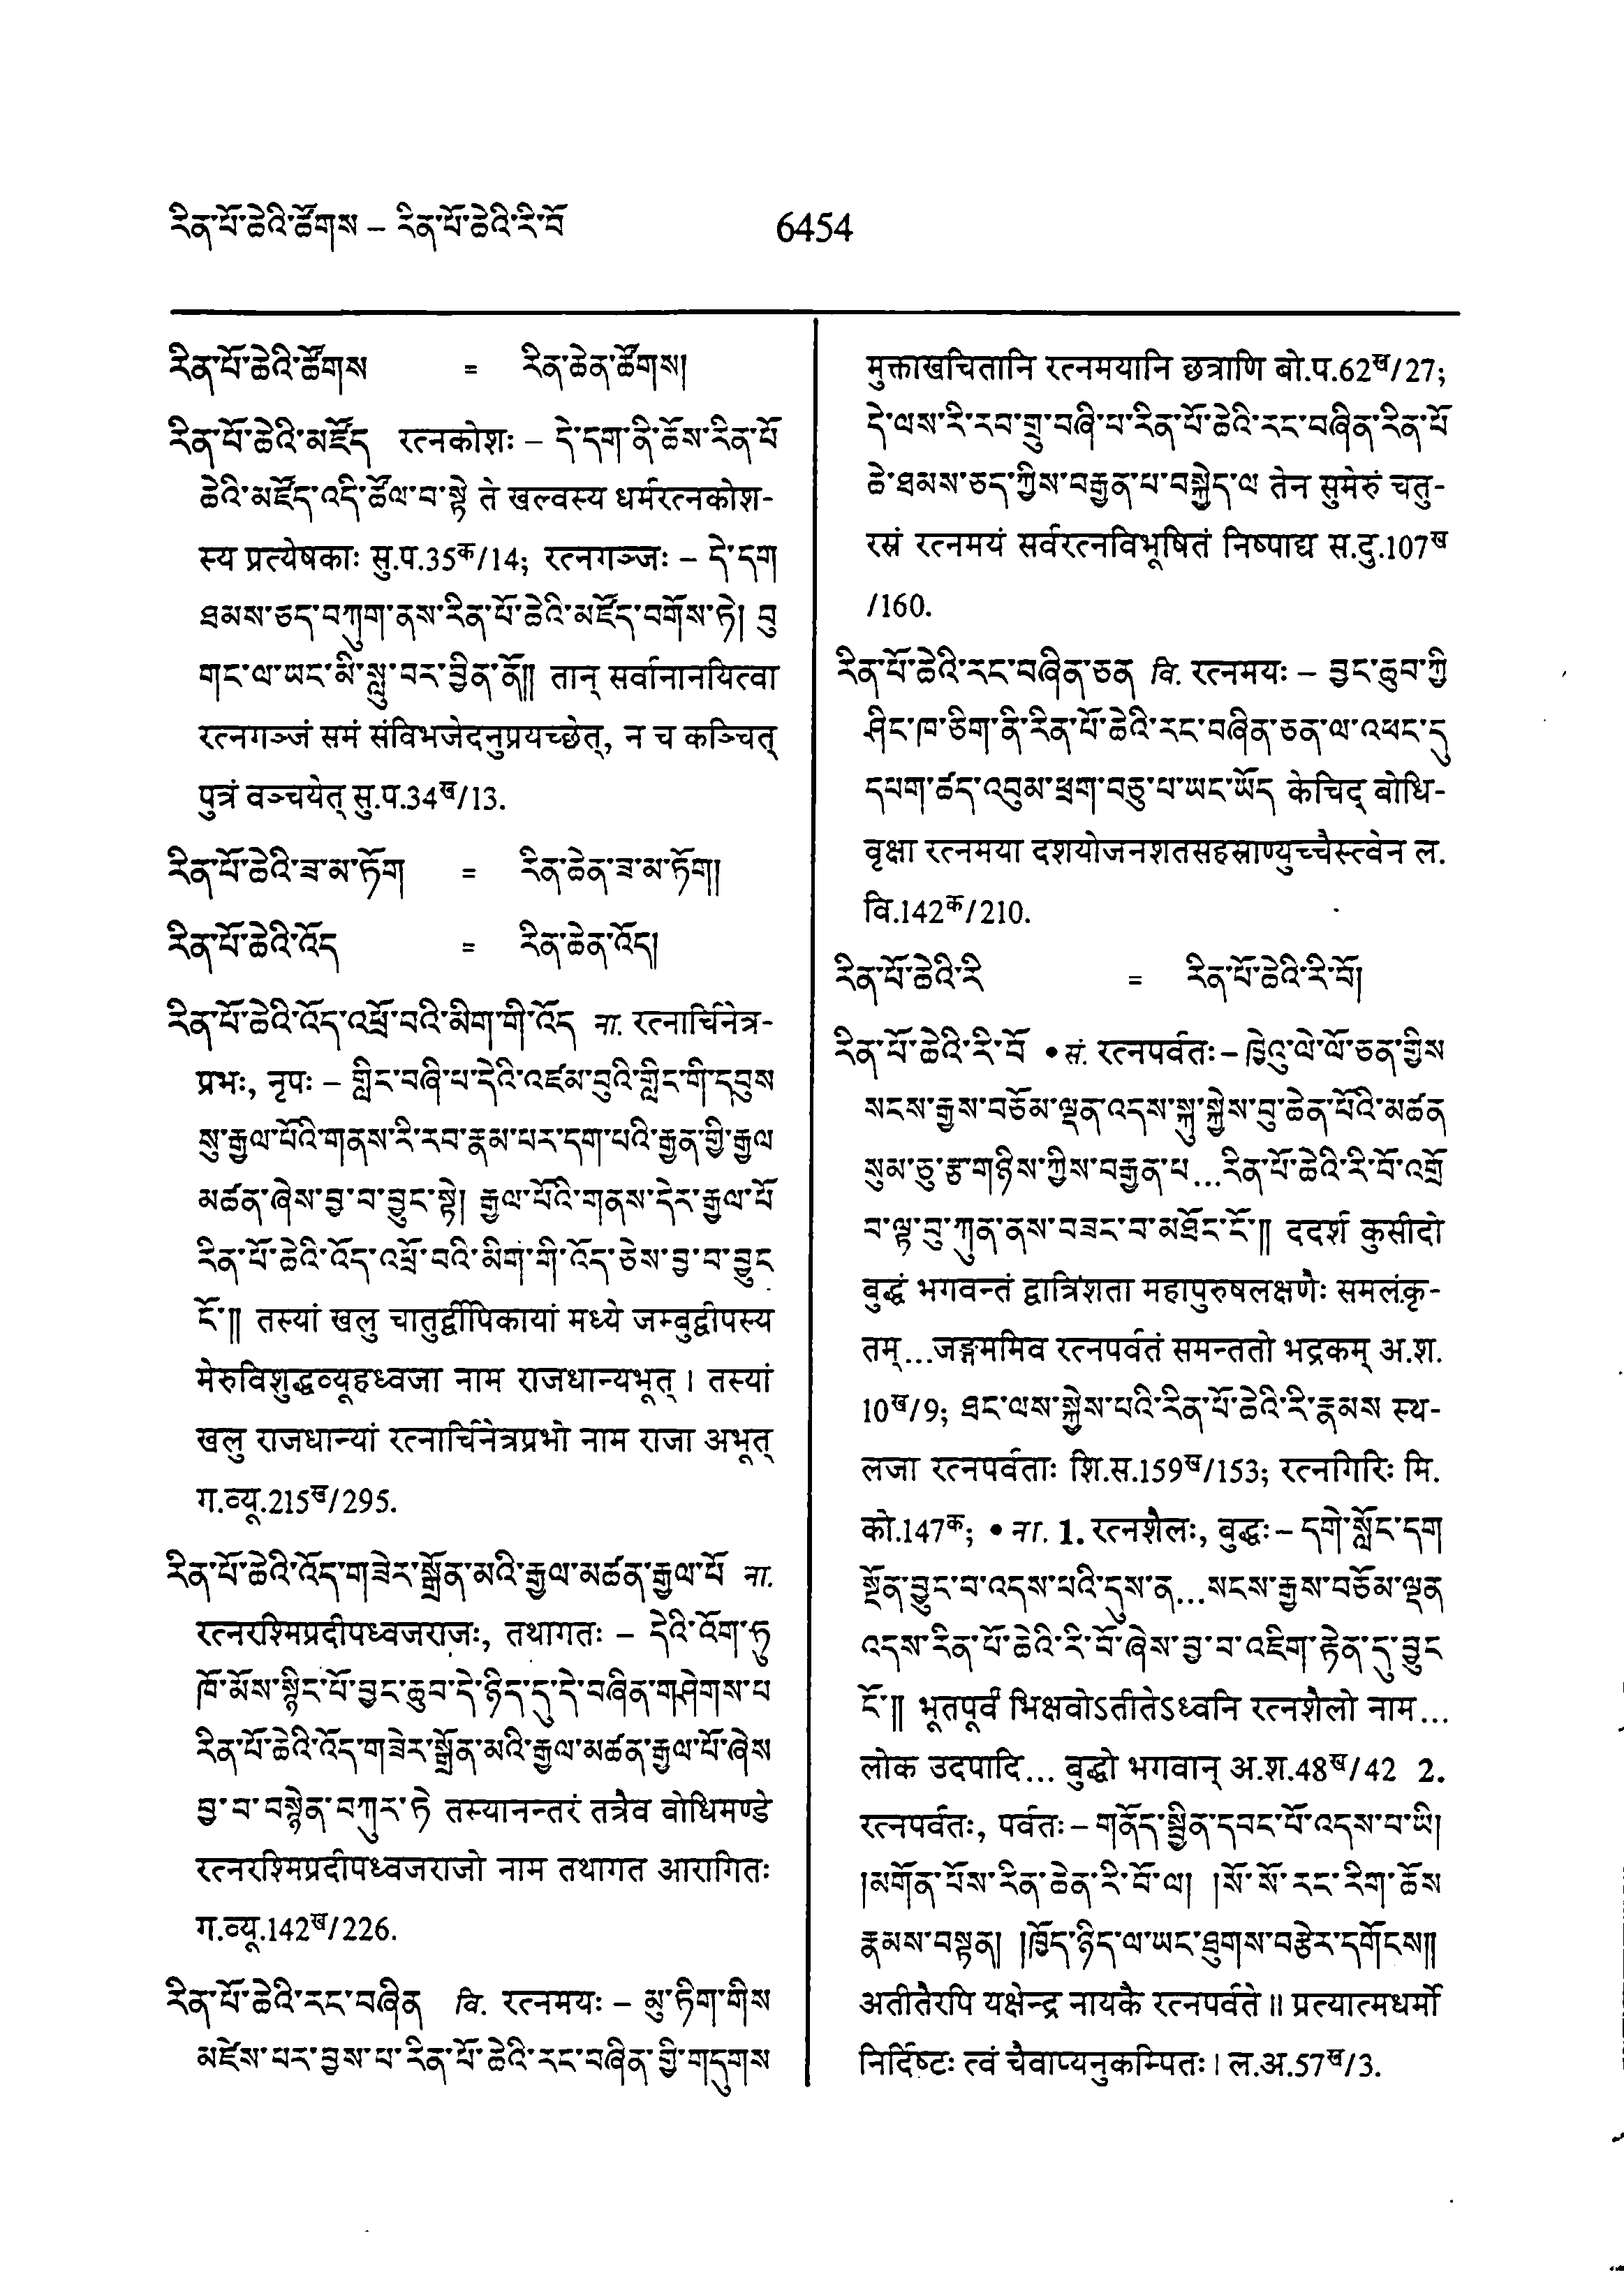 རིན་པོ་ཆེའི་ཚོགས – རིན་པོ་ཆེའི་རི་བོ 6454
རིན་པོ་ཆེའི་ཚོགས = རིན་ཆེན་ཚོགས།
རིན་པོ་ཆེའི་མཛོད रत्नकोशः – དེ་དག་ནི་ཆོས་རིན་པོ
ཆེའི་མཛོད་འདི་ཚོལ་བ་སྟེ ते खल्वस्य धर्मरत्नकोश-
स्य प्रत्येषकाः सु.प.35क/14; रत्नगञ्जः – དེ་དག
ཐམས་ཅད་བཀུག་ནས་རིན་པོ་ཆེའི་མཛོད་བགོས་ཏེ། བུ
གང་ལ་ཡང་མི་སླུ་བར་བྱིན་ནོ།། तान् सर्वानानयित्वा
रत्नगञ्जं समं संविभजेदनुप्रयच्छेत्, न च कञ्चित्
पुत्रं वञ्चयेत् सु.प.34ख/13.
རིན་པོ་ཆེའི་ཟ་མ་ཏོག = རིན་ཆེན་ཟ་མ་ཏོག།
རིན་པོ་ཆེའི་འོད = རིན་ཆེན་འོད།
རིན་པོ་ཆེའི་འོད་འཕྲོ་བའི་མིག་གི་འོད ना. रत्नार्चिनेत्र-
प्रभः, नृपः – གླིང་བཞི་པ་དེའི་འཛམ་བུའི་གླིང་གི་དབུས
སུ་རྒྱལ་པོའི་གནས་རི་རབ་རྣམ་པར་དག་པའི་རྒྱན་གྱི་རྒྱལ
མཚན་ཞེས་བྱ་བ་བྱུང་སྟེ། རྒྱལ་པོའི་གནས་དེར་རྒྱལ་པོ
རིན་པོ་ཆེའི་འོད་འཕྲོ་བའི་མིག་གི་འོད་ཅེས་བྱ་བ་བྱུང
ངོ་།། तस्यां खलु चातुर्द्वीपिकायां मध्ये जम्बुद्वीपस्य
मेरुविशुद्धव्यूहध्वजा नाम राजधान्यभूत् । तस्यां
खलु राजधान्यां रत्नार्चिनेत्रप्रभो नाम राजा अभूत्
ग.व्यू.215ख/295.
རིན་པོ་ཆེའི་འོད་གཟེར་སྒྲོན་མའི་རྒྱལ་མཚན་རྒྱལ་པོ ना.
रत्नरश्मिप्रदीपध्वजराजः, तथागतः – དེའི་འོག་ཏུ
ཁོ་མོས་སྙིང་པོ་བྱང་ཆུབ་དེ་ཉིད་དུ་དེ་བཞིན་གཤེགས་པ
རིན་པོ་ཆེའི་འོད་གཟེར་སྒྲོན་མའི་རྒྱལ་མཚན་རྒྱལ་པོ་ཞེས
བྱ་བ་བསྙེན་བཀུར་ཏེ तस्यानन्तरं तत्रैव बोधिमण्डे
रत्नरश्मिप्रदीपध्वजराजो नाम तथागत आरागितः
ग.व्यू.142ख/226.
རིན་པོ་ཆེའི་རང་བཞིན वि. रत्नमयः – མུ་ཏིག་གིས
མཛེས་པར་བྱས་པ་རིན་པོ་ཆེའི་རང་བཞིན་གྱི་གདུགས
मुक्ताखचितानि रत्नमयानि छत्राणि बो.प.62ख/27;
དེ་ལས་རི་རབ་གྲུ་བཞི་པ་རིན་པོ་ཆེའི་རང་བཞིན་རིན་པོ
ཆེ་ཐམས་ཅད་ཀྱིས་བརྒྱན་པ་བསྐྱེད་ལ तेन सुमेरुं चतु-
रस्रं रत्नमयं सर्वरत्नविभूषितं निष्पाद्य स.दु.107ख
/160.
རིན་པོ་ཆེའི་རང་བཞིན་ཅན वि. रत्नमयः – བྱང་ཆུབ་ཀྱི
ཤིང་ཁ་ཅིག་ནི་རིན་པོ་ཆེའི་རང་བཞིན་ཅན་ལ་འཕང་དུ
དཔག་ཚད་འབུམ་ཕྲག་བཅུ་པ་ཡང་ཡོད केचिद् बोधि-
वृक्षा रत्नमया दशयोजनशतसहस्राण्युच्चैस्त्वेन ल.
वि.142क/210.
རིན་པོ་ཆེའི་རི = རིན་པོ་ཆེའི་རི་བོ།
རིན་པོ་ཆེའི་རི་བོ • सं. रत्नपर्वतः – ཁྱེའུ་ལེ་ལོ་ཅན་གྱིས
སངས་རྒྱས་བཅོམ་ལྡན་འདས་སྐུ་སྐྱེས་བུ་ཆེན་པོའི་མཚན
སུམ་ཅུ་རྩ་གཉིས་ཀྱིས་བརྒྱན་པ...རིན་པོ་ཆེའི་རི་བོ་འགྲོ
བ་ལྟ་བུ་ཀུན་ནས་བཟང་བ་མཐོང་ངོ་།། ददर्श कुसीदो
बुद्धं भगवन्तं द्वात्रिंशता महापुरुषलक्षणैः समलंकृ-
तम्...जङ्गममिव रत्नपर्वतं समन्ततो भद्रकम् अ.श.
10ख/9; ཐང་ལས་སྐྱེས་པའི་རིན་པོ་ཆེའི་རི་རྣམས स्थ-
लजा रत्नपर्वताः शि.स.159ख/153; रत्नगिरिः मि.
को.147क; • ना. 1. रत्नशैलः, बुद्धः – དགེ་སློང་དག
སྔོན་བྱུང་བ་འདས་པའི་དུས་ན...སངས་རྒྱས་བཅོམ་ལྡན
འདས་རིན་པོ་ཆེའི་རི་བོ་ཞེས་བྱ་བ་འཇིག་རྟེན་དུ་བྱུང
ངོ་།། भूतपूर्वं भिक्षवोऽतीतेऽध्वनि रत्नशैलो नाम...
लोक उदपादि... बुद्धो भगवान् अ.श.48ख/42 2.
रत्नपर्वतः, पर्वतः – གནོད་སྦྱིན་དབང་པོ་འདས་པ་ཡི།
།མགོན་པོས་རིན་ཆེན་རི་བོ་ལ། །སོ་སོ་རང་རིག་ཆོས
རྣམས་བསྟན། །ཁྱོད་ཉིད་ལ་ཡང་ཐུགས་བརྩེར་དགོངས།།
अतीतैरपि यक्षेन्द्र नायकै रत्नपर्वते ॥ प्रत्यात्मधर्मो
निर्दिष्टः त्वं चैवाप्यनुकम्पितः । ल.अ.57ख/3.